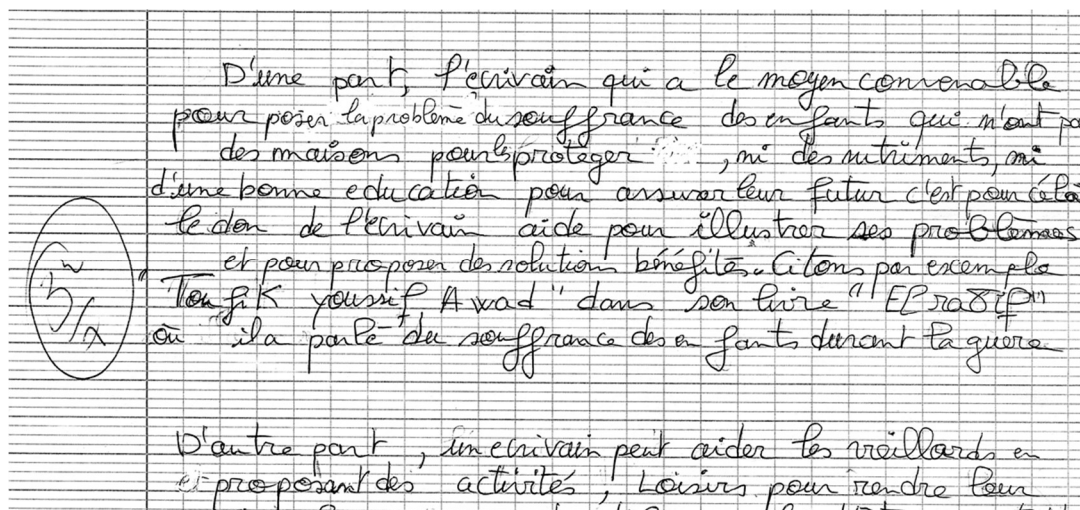 D'une part, l'ecrivain qui a le moyen convenable
pour poser la problème du souffrance des enfants qui n'ont pa
des maisons pour les protéger , ni des nutriments, ni
d'une bonne education pour assurer leur futur c'est pour céla
le don de l'ecrivain aide pour illustrer ses problèmes
et pour proposer des solutions bénéfites. Citons par exemple
"Toufik youssif Awad" dans son livre "El ragif"
où il a parlé du souffrance des enfants durant la guere
D'autre part, un ecrivain peut aider les vieillards en
et proposant des activités, Loisirs pour rendre leur